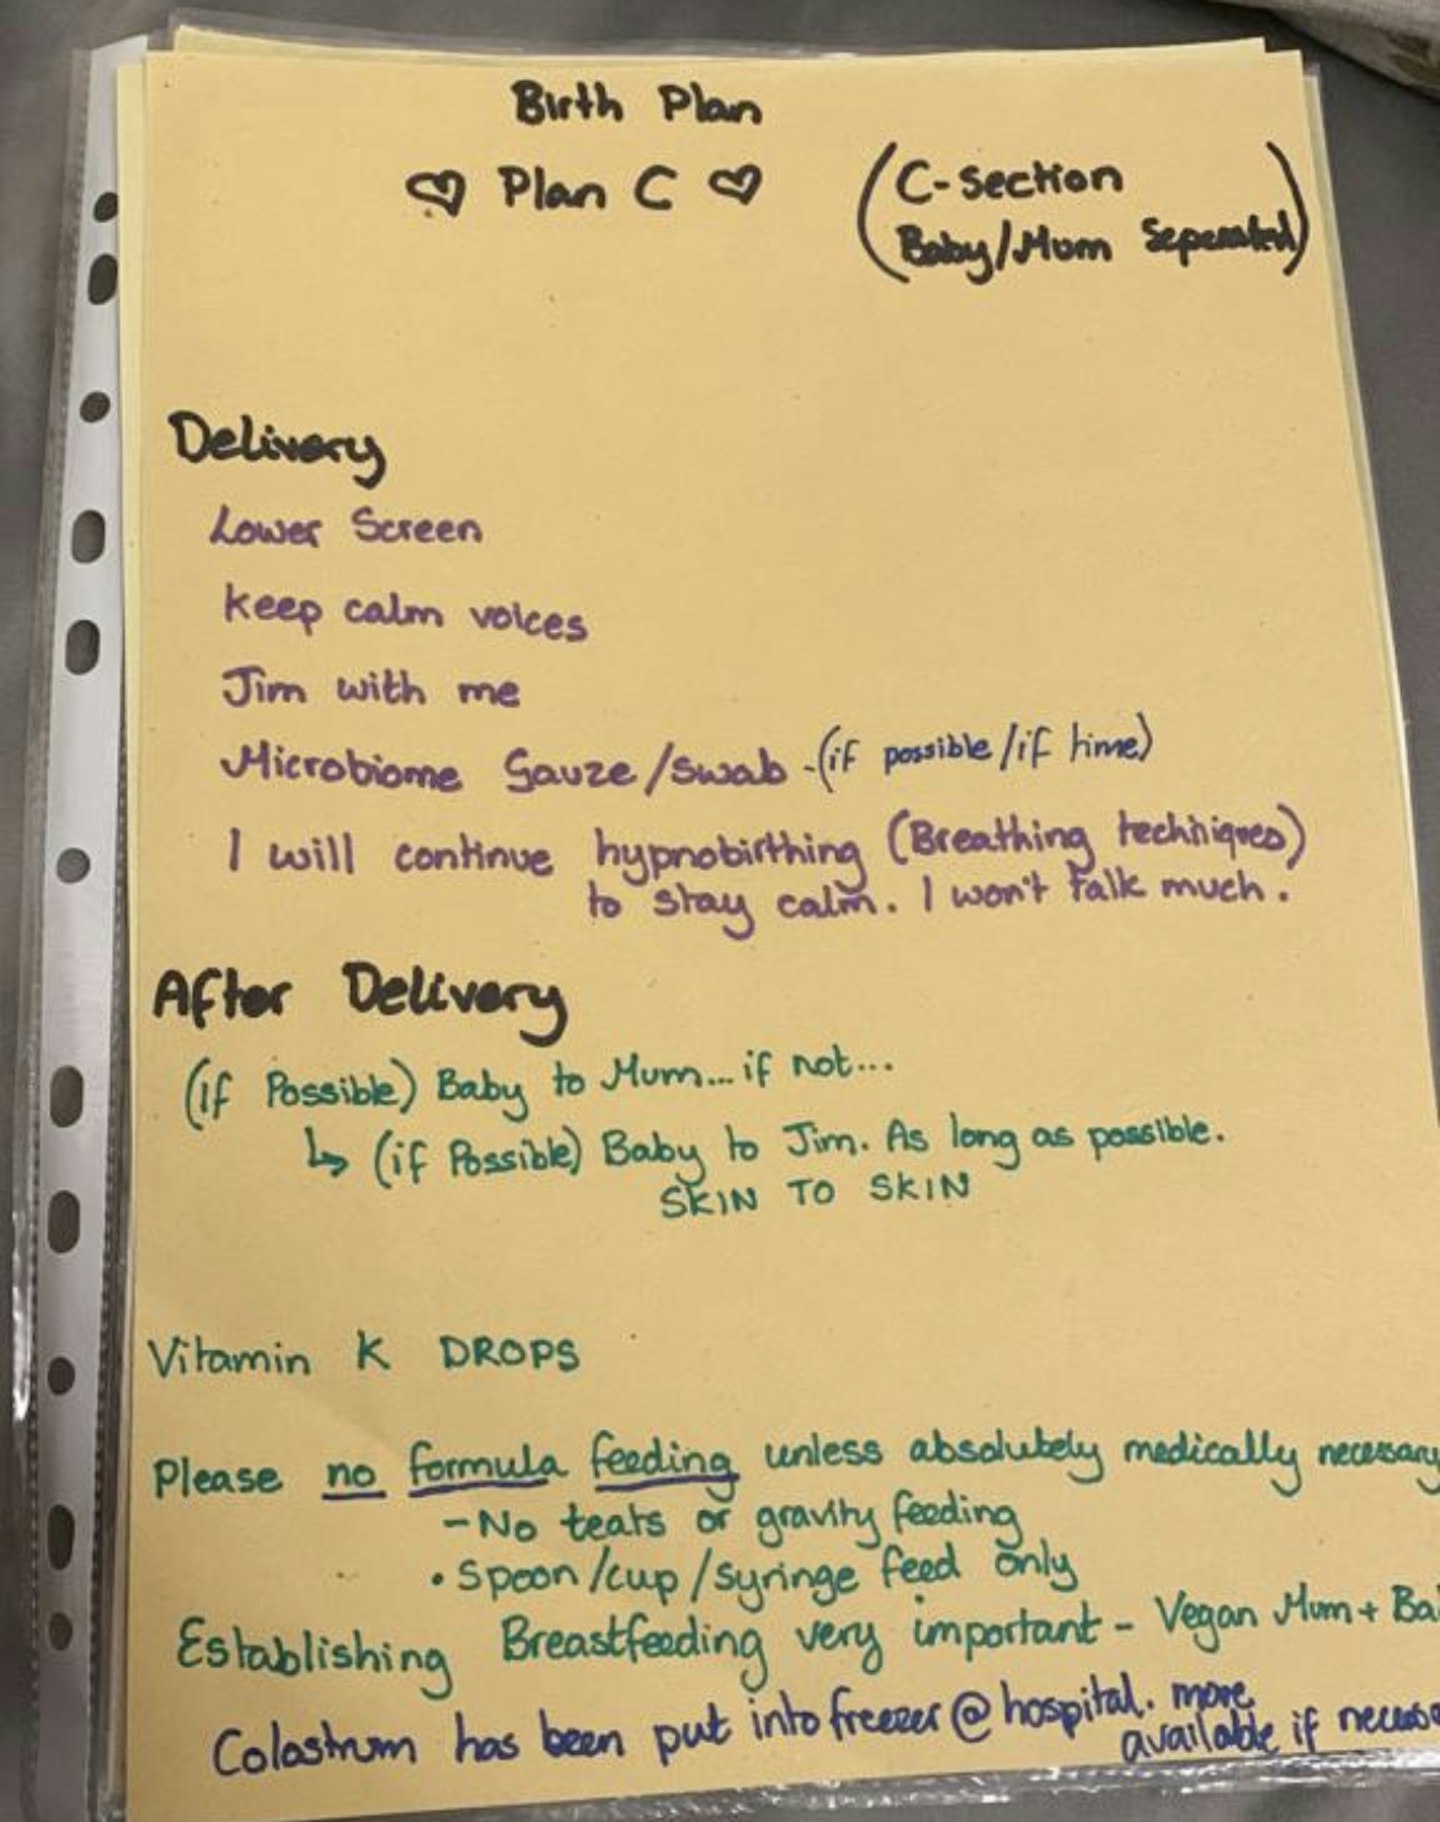 Birth Plan
♡ Plan C ♡
(C-section
Baby/Mum Seperated)
Delivery
Lower Screen
keep calm voices
Jim with me
Microbiome Gauze/swab -(if possible/if time)
I will continue hypnobirthing (Breathing techniques)
to stay calm. I won't talk much.
After Delivery
(If Possible) Baby to Mum... if not...
↳ (if Possible) Baby to Jim. As long as possible.
SKIN TO SKIN
Vitamin K DROPS
Please no formula feeding unless absolutely medically necessary
- No teats or gravity feeding
• Spoon/cup/syringe feed only
Establishing Breastfeeding very important - Vegan Mum + Ba
Colostrum has been put into freezer @ hospital. more
available if